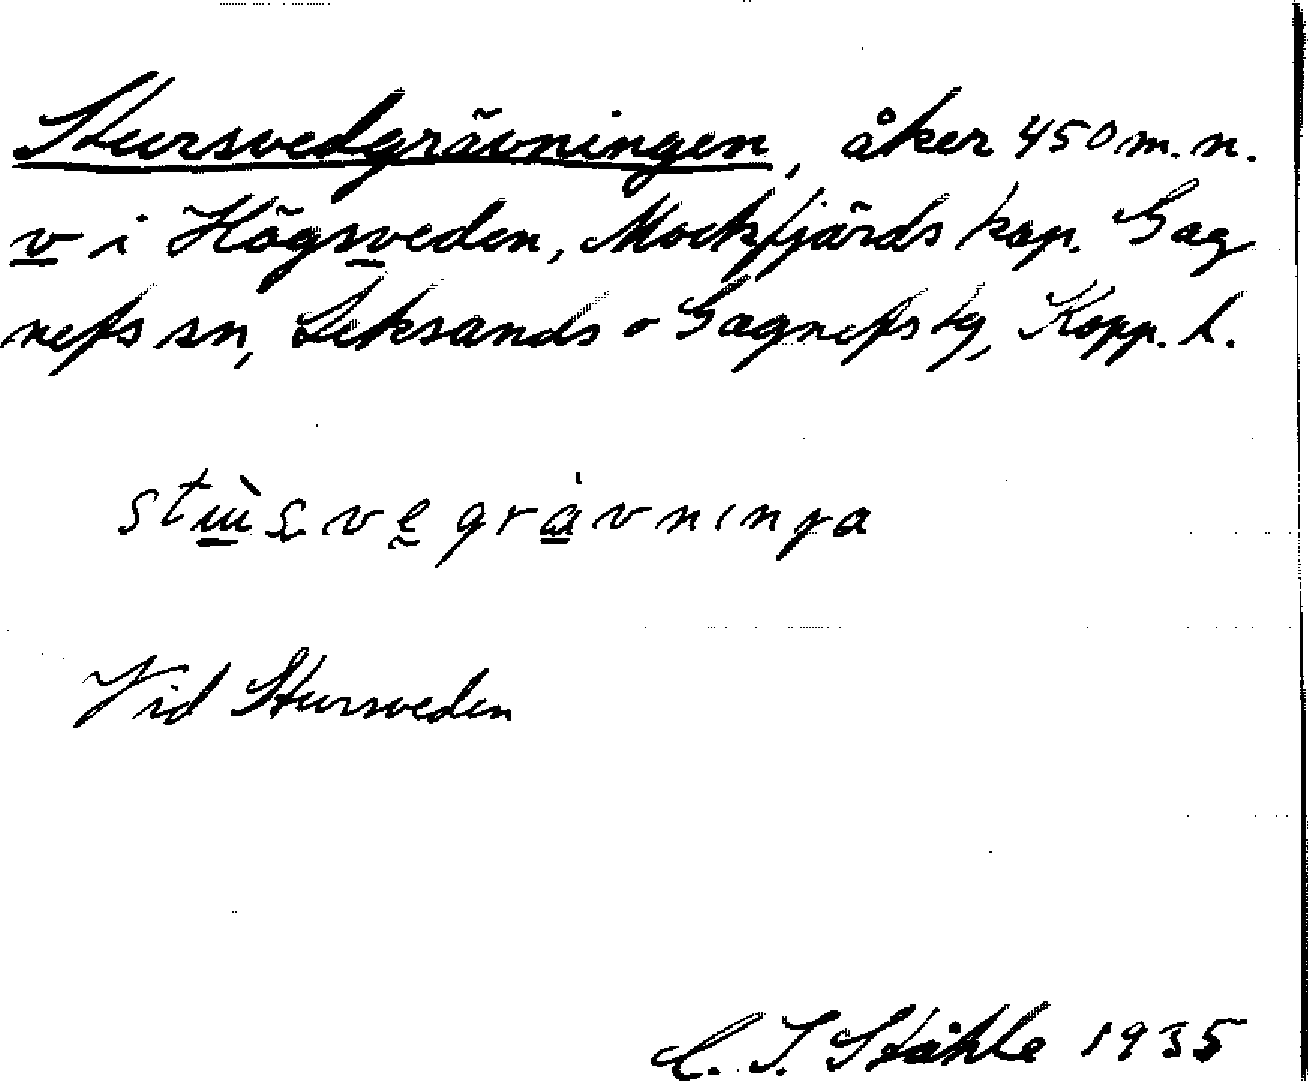 Stursvedgrävningen, åker 450 m. n.
v i Högsveden, Mockfjärds kap. Gag
nefs sn, Leksands o Gagnefs tg, Kopp. l.
Vid Stursveden
C. I. Ståhle 1935